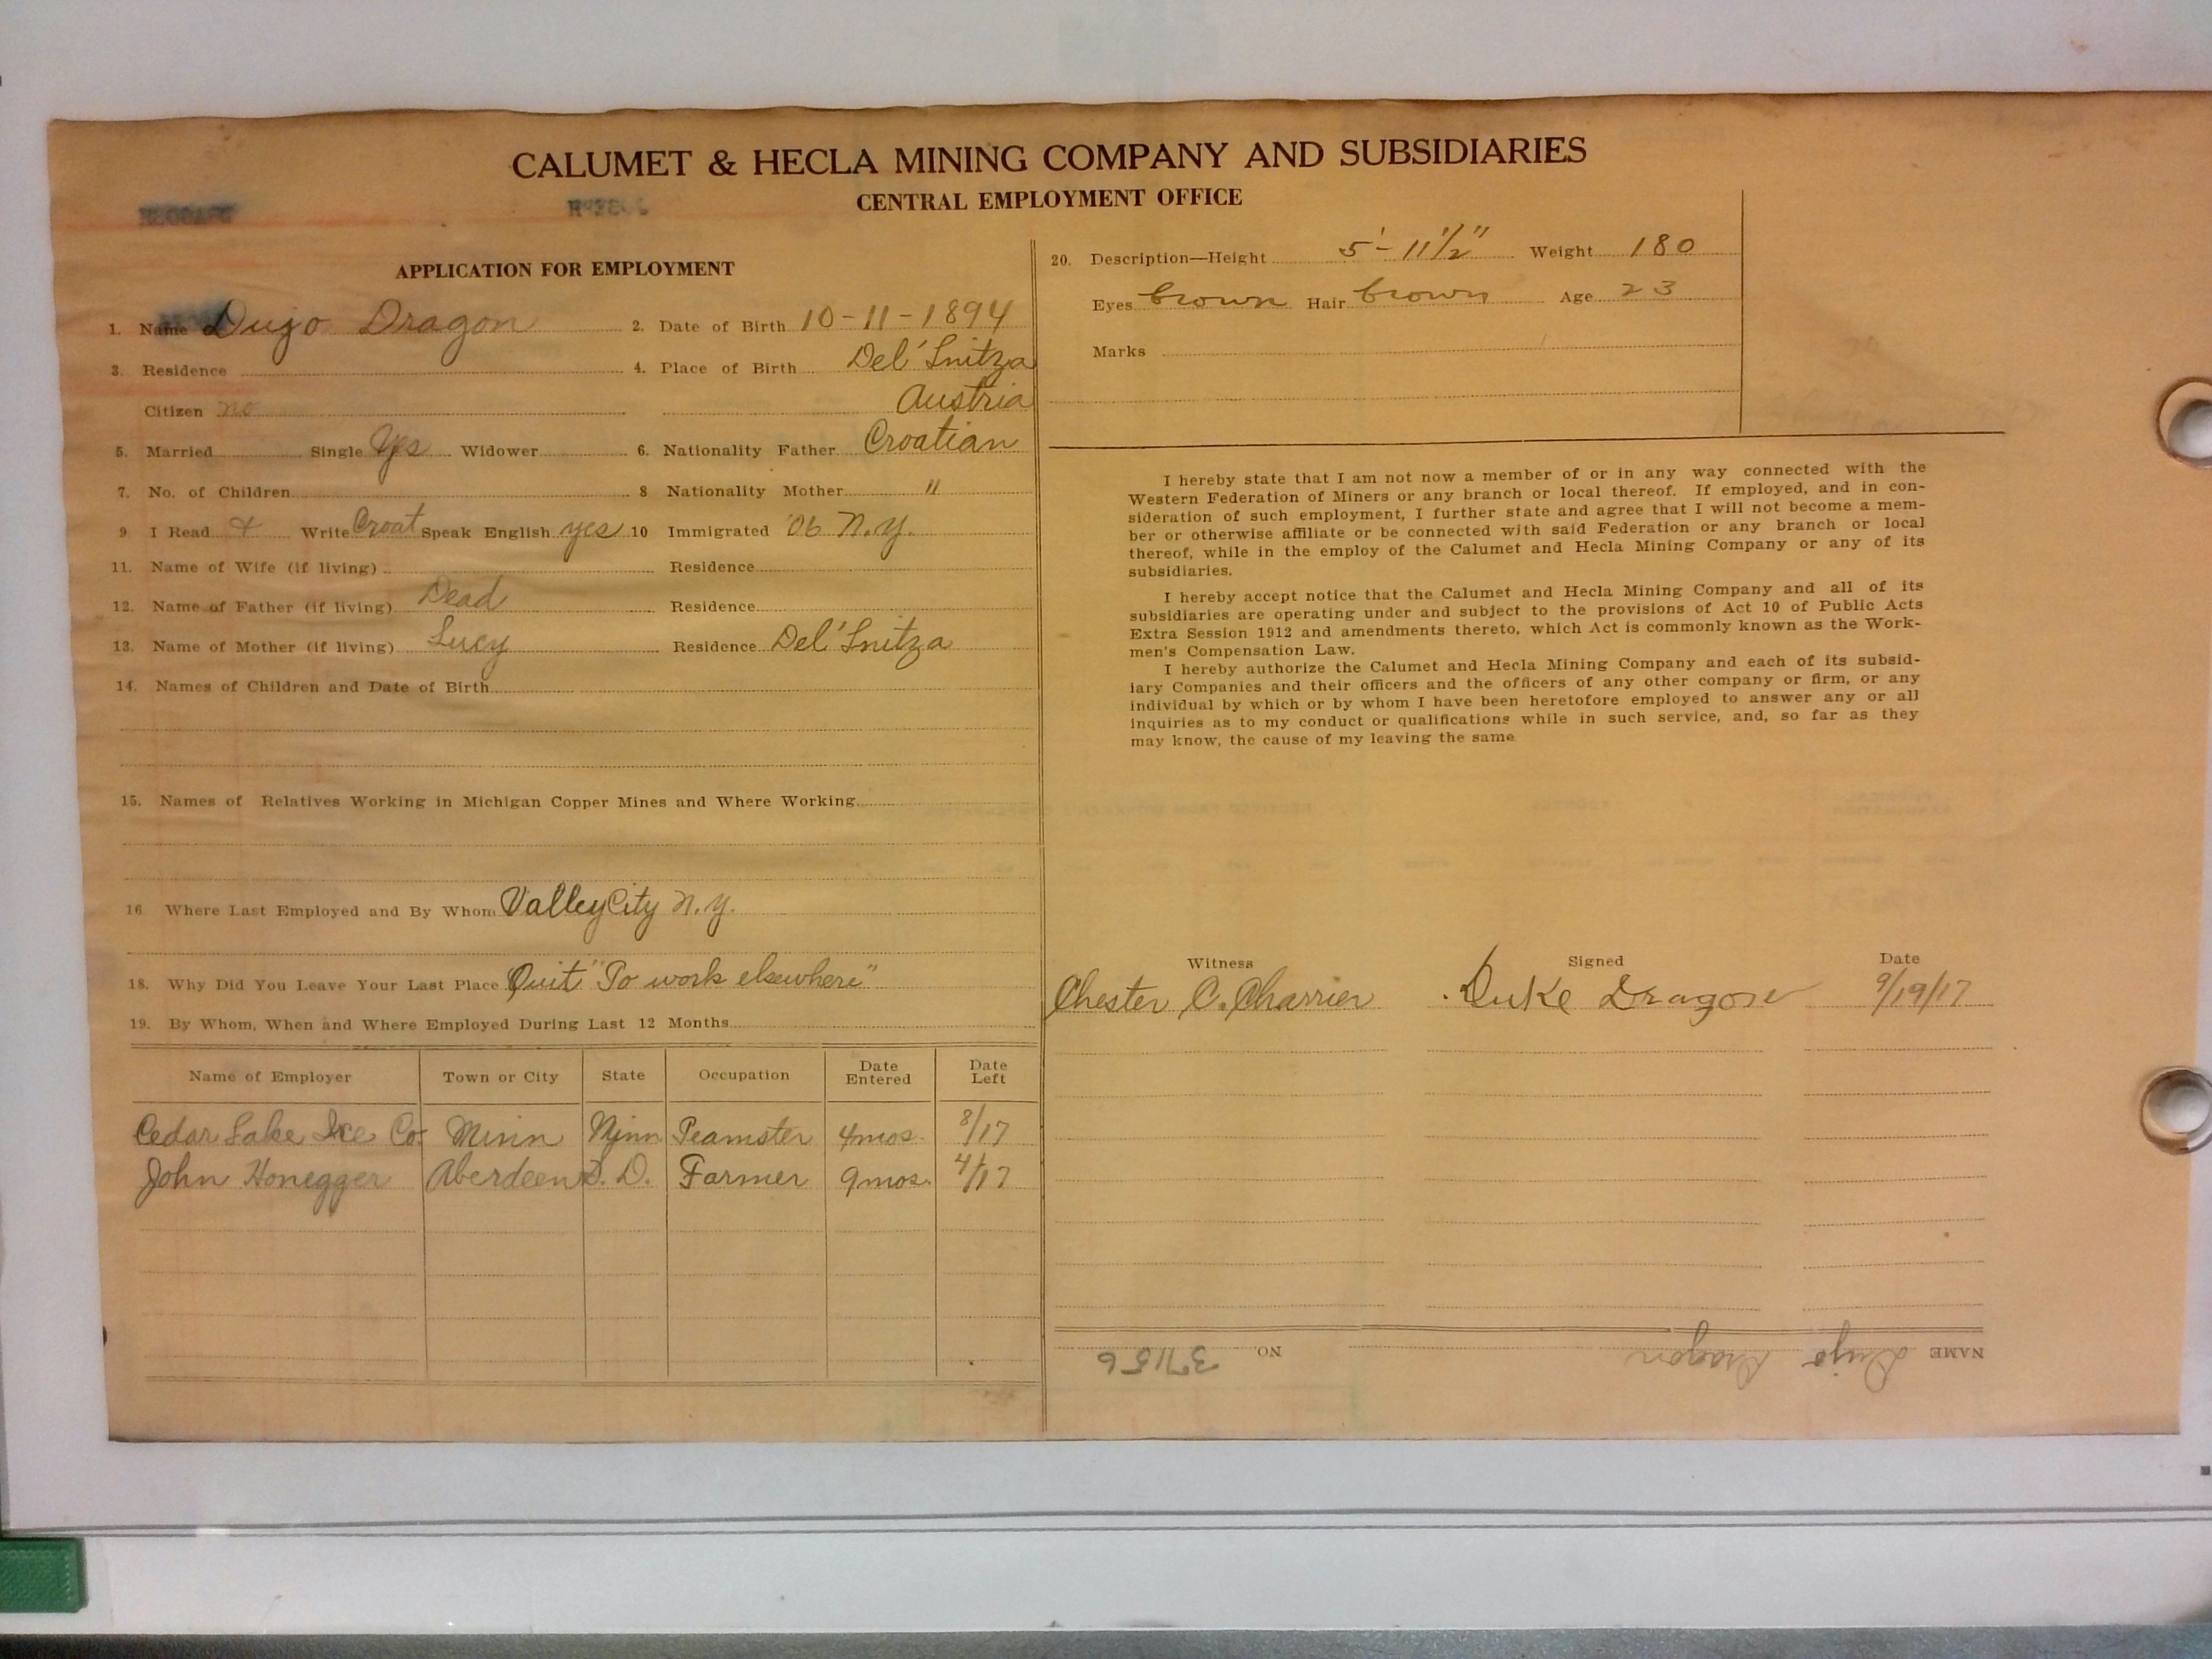 CALUMET & HECLA MINING COMPANY AND SUBSIDIARIES
CENTRAL EMPLOYMENT OFFICE
APPLICATION FOR EMPLOYMENT
1. Name Dujo Dragon 2. Date of Birth 10-11-1894
3. Residence 4. Place of Birth Del' Snitza
Citizen no Austria
5. Married Single Yes Widower 6. Nationality Father Croatian
7. No. of Children 8 Nationality Mother "
9 I Read + Write Croat Speak English yes 10 Immigrated '06 N.Y.
11. Name of Wife (if living) Residence
12. Name of Father (if living) Dead Residence
13. Name of Mother (if living) Lucy Residence Del' Snitza
14. Names of Children and Date of Birth
15. Names of Relatives Working in Michigan Copper Mines and Where Working
16 Where Last Employed and By Whom Valley City N.Y.
18. Why Did You Leave Your Last Place Quit "To work elsewhere"
19. By Whom, When and Where Employed During Last 12 Months
Name of Employer Town or City State Occupation Date Entered Date Left
Cedar Lake Ice Co Minn Minn Teamster 4mos. 8/17
John Honegger Aberdeen S. D. Farmer 9mos. 4/17
20. Description—Height 5'-11½" Weight 180
Eyes brown Hair brown Age 23
Marks
I hereby state that I am not now a member of or in any way connected with the
Western Federation of Miners or any branch or local thereof. If employed, and in con-
sideration of such employment, I further state and agree that I will not become a mem-
ber or otherwise affiliate or be connected with said Federation or any branch or local
thereof, while in the employ of the Calumet and Hecla Mining Company or any of its
subsidiaries.
I hereby accept notice that the Calumet and Hecla Mining Company and all of its
subsidiaries are operating under and subject to the provisions of Act 10 of Public Acts
Extra Session 1912 and amendments thereto, which Act is commonly known as the Work-
men's Compensation Law.
I hereby authorize the Calumet and Hecla Mining Company and each of its subsid-
iary Companies and their officers and the officers of any other company or firm, or any
individual by which or by whom I have been heretofore employed to answer any or all
inquiries as to my conduct or qualifications while in such service, and, so far as they
may know, the cause of my leaving the same
Witness Signed Date
Chester C. Charrier Duke Dragon 9/19/17
NAME Dujo Dragon NO 37156